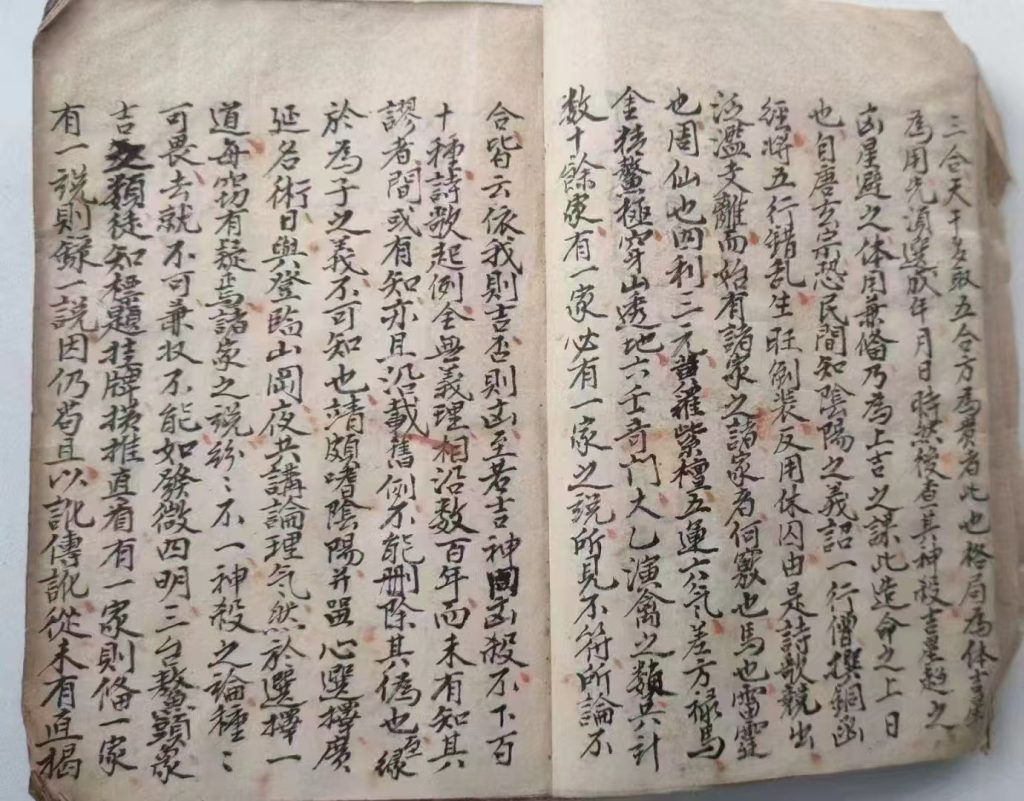 三合天干多取五合方為貴者此也格局為体吉星
為用先須選於年月日時然後查其神殺吉星趋之
凶星避之体用兼俻乃為上吉之課此造命之上日
也自唐玄宗恐民間知陰陽之義詔一行僧撰銅函
經將五行錯乱生旺倒裝反用休囚由是詩歌競出
泛濫支離而始有諸家之諸家者何竅也馬也雷霆
也周仙也四利三元黄羅紫檀五運六气差方禄馬
金精鰲極穿山透地六壬奇门大乙演禽之類共计
数十餘家有一家必有一家之説所見不符所論不
合皆云依我則吉否則凶至若吉神凶殺不下百
十種詩歌起例全無義理相沿数百年而未有知其
謬者間或有知亦且沿載舊例不能删除其偽也縁
於為子之義不可知也靖頗嗜陰陽并嚣心選擇廣
延名術日與登臨山岡夜共講論理气然於選擇一
道每窃有疑焉諸家之説紛〻不一神殺之論種〻
可畏去就不可兼收不能如發微四明三台鰲頭象
吉之類徒知标題挂牌横推直看有一家則俻一家
有一説則錄一説因仍苟且以訛傳訛從未有直揭